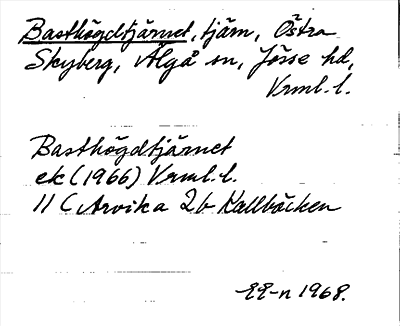 Basthögdtjärnet, tjärn, Östra
Skyberg, Älgå sn, Jösse hd,
Vrml. l.
Basthögdtjärnet
ek (1966) Vrml. l.
11 C Arvika 2b Kallbäcken
1968.